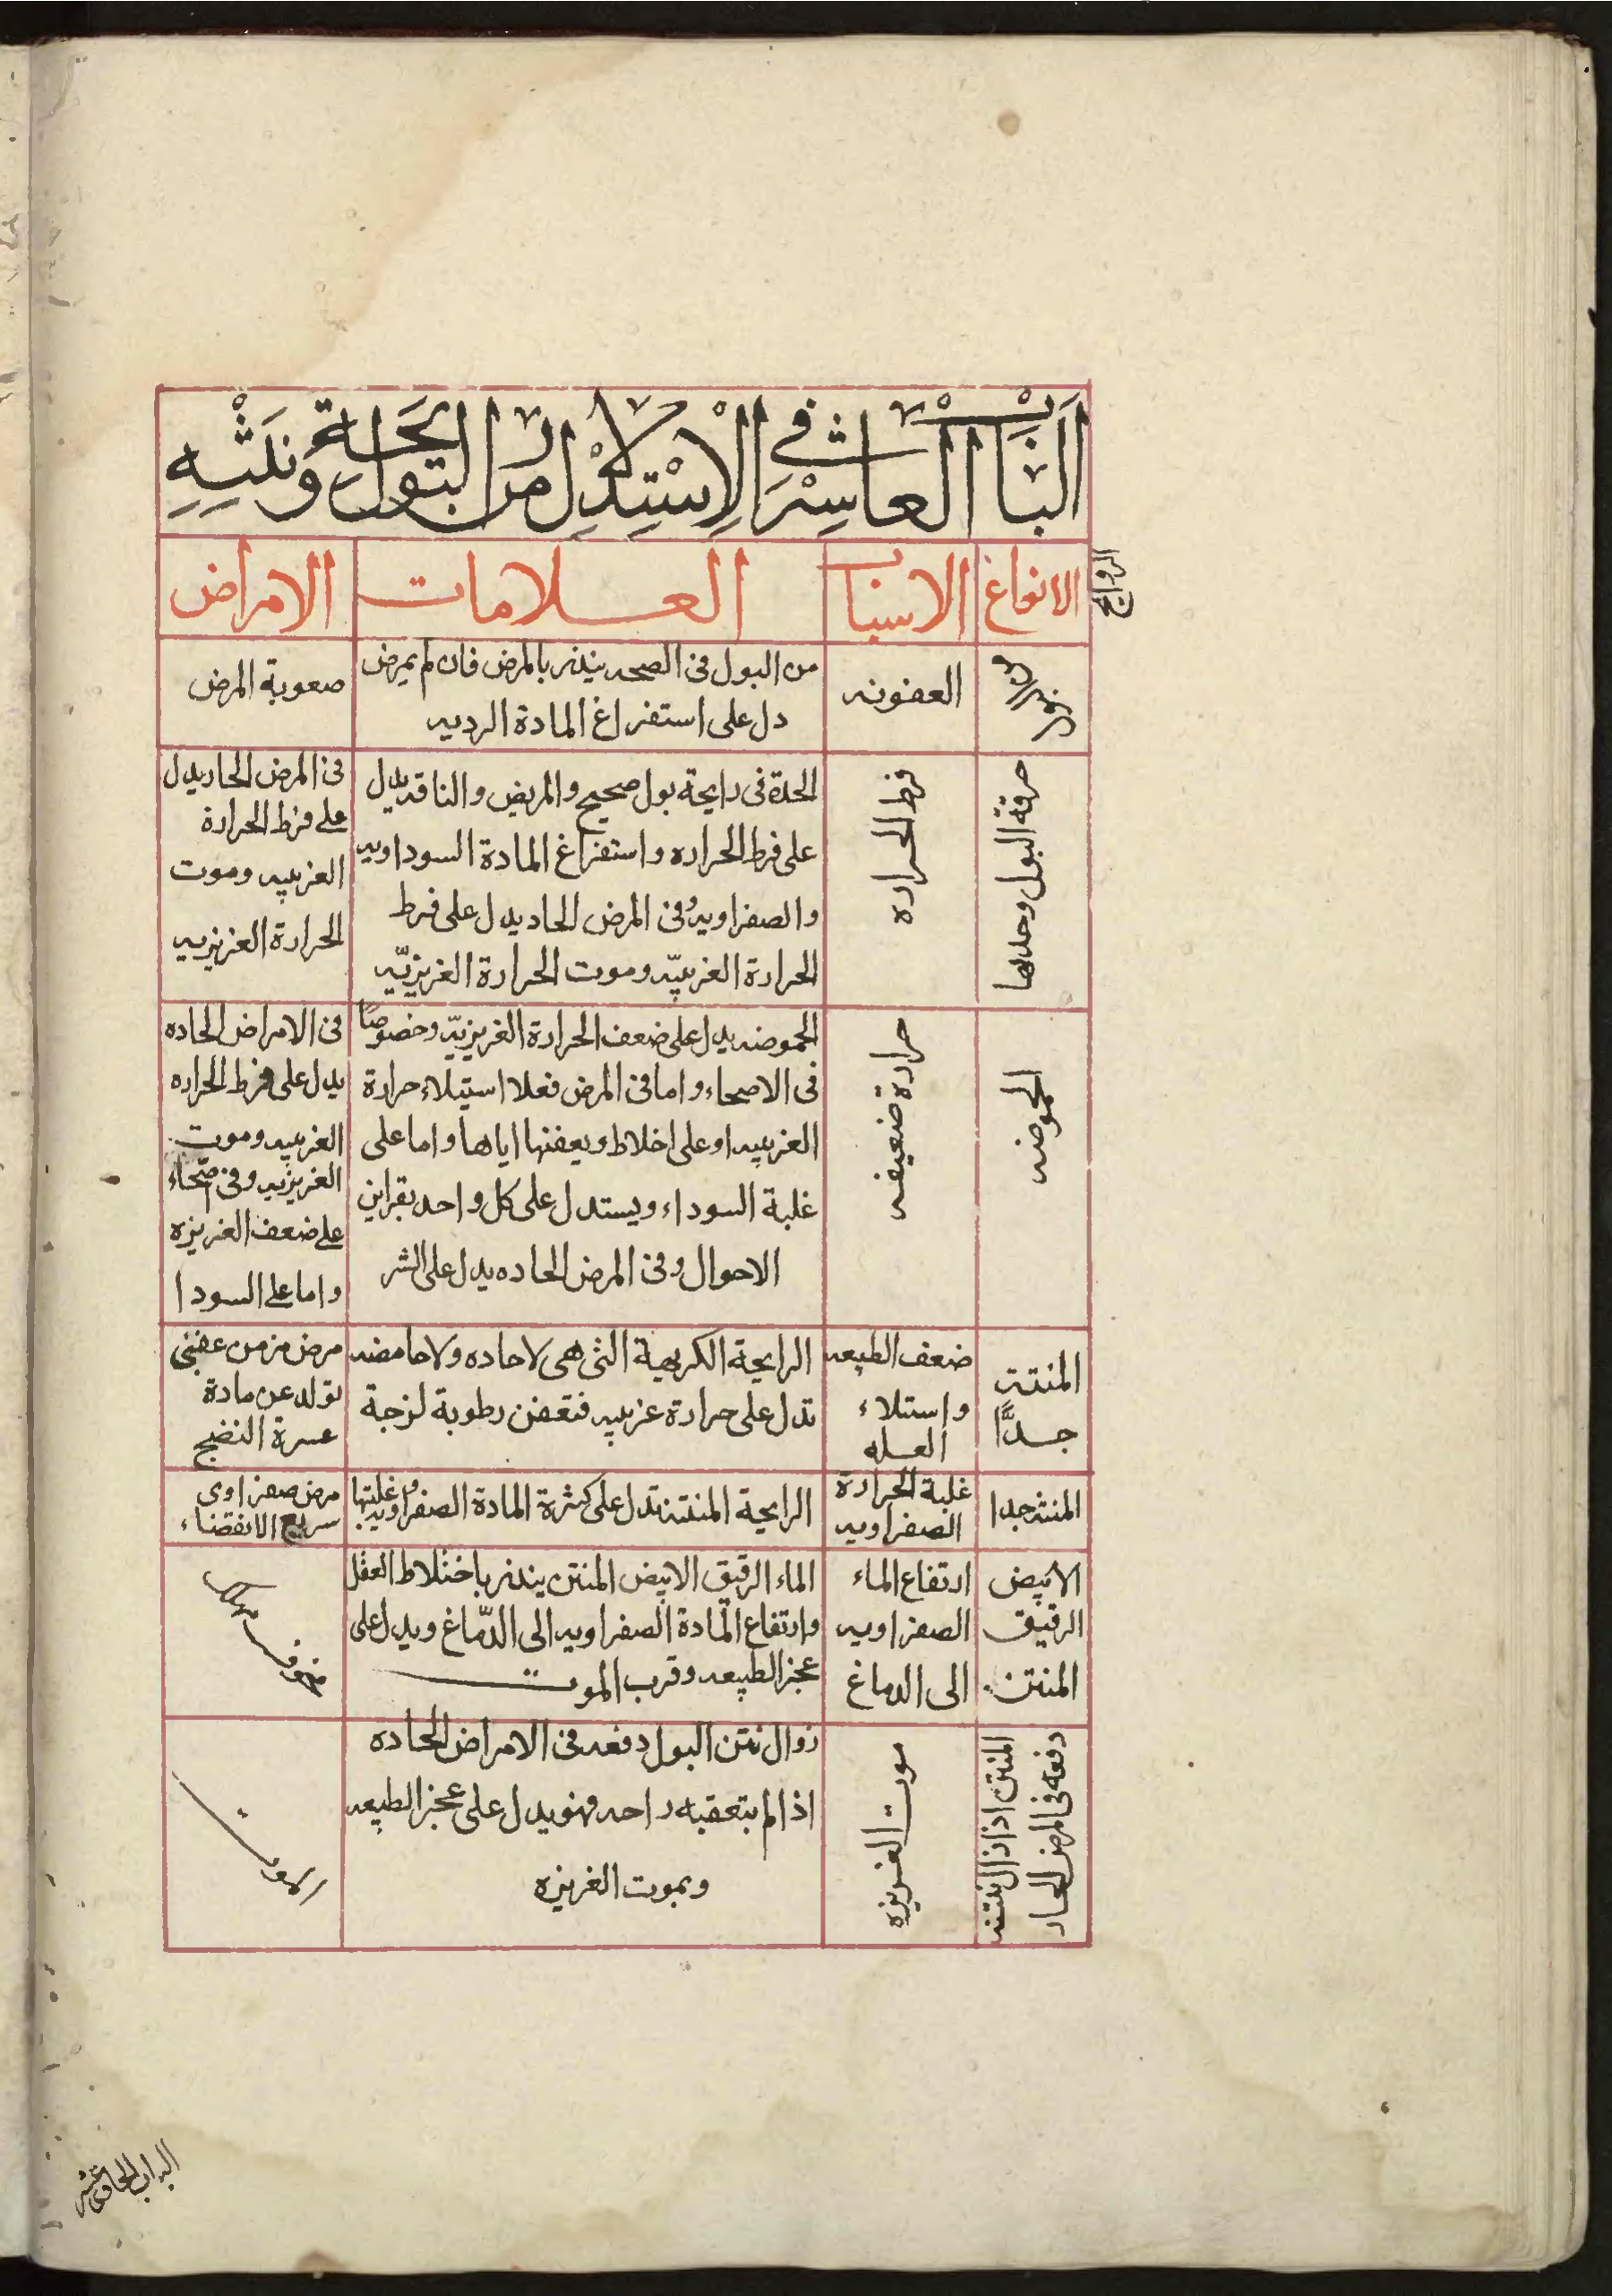 الباب العاشر في الاستدلال من رايحة البول ونتنه
الروايح
الانواع
الاسباب
العلامات
الامراض
العفونه
من البول فى الصحه ينذر بالمرض فان لم يمرض
دل على استفراغ المادة الرديه
صعوبة المرض
حرقة البول وحدتها
فرط الحراره
الحدة فى رايحة بول صحيح والمريض والناقه يدل
على فرط الحراره واستفراغ المادة السوداويه
والصفراويه وفى المرض الحاد يدل على فرط
الحرارة الغريبيّه وموت الحرارة الغريزيّه
فى المرض الحار يدل
على فرط الحرارة
الغريبيه وموت
الحرارة الغريزيه
الحموضه
حرارة ضعيفه
الحموضه يدل على ضعف الحرارة الغريزيّه وخصوصًا
فى الاصحاء واما فى المرض فعلا استيلاء حرارة
الغريبيه او على اخلاط ويعفنها اياها واما على
غلبة السوداء ويستدل على كل واحد بقراين
الاحوال وفى المرض الحاده يدل على الشر
فى الامراض الحاده
يدل على فرط الحراره
الغريبيه وموت
الغريزيه وفى اصحاء
على ضعف الغريزه
واما على السودا
المنتن
جدًّا
ضعف الطبيعه
واستلاء
العله
الرايحة الكريهة التى هى لا حاده ولا حامضه
تدل على حرارة غريبيه فتعفن رطوبة لزجة
مرض مزمن عفنى
تولد عن مادة
عسرة النضج
المنتن جدا
غلبة الحرارة
الصفراويه
الرايحة المنتنه تدل على كثرة المادة الصفراويه وغلبتها
مرض صفراوى
سريع الانقضاء
الابيض
الرقيق
المنتن
ارتفاع الماء
الصفراويه
الى الدماغ
الماء الرقيق الابيض المنتن ينذر باختلاط العقل
وارتفاع المادة الصفراويه الى الدّماغ ويدل على
عجز الطبيعه وقرب الموت
مخوف مهلك
المنتن اذا زال النتنه
دفعه فى المرض الحار
موت الغريزه
زوال نتن البول دفعه فى الامراض الحاده
اذا لم يتعقبه راحه فهو يدل على عجز الطبيعه
وبموت الغريزه
الموت
الباب الحادى عشر